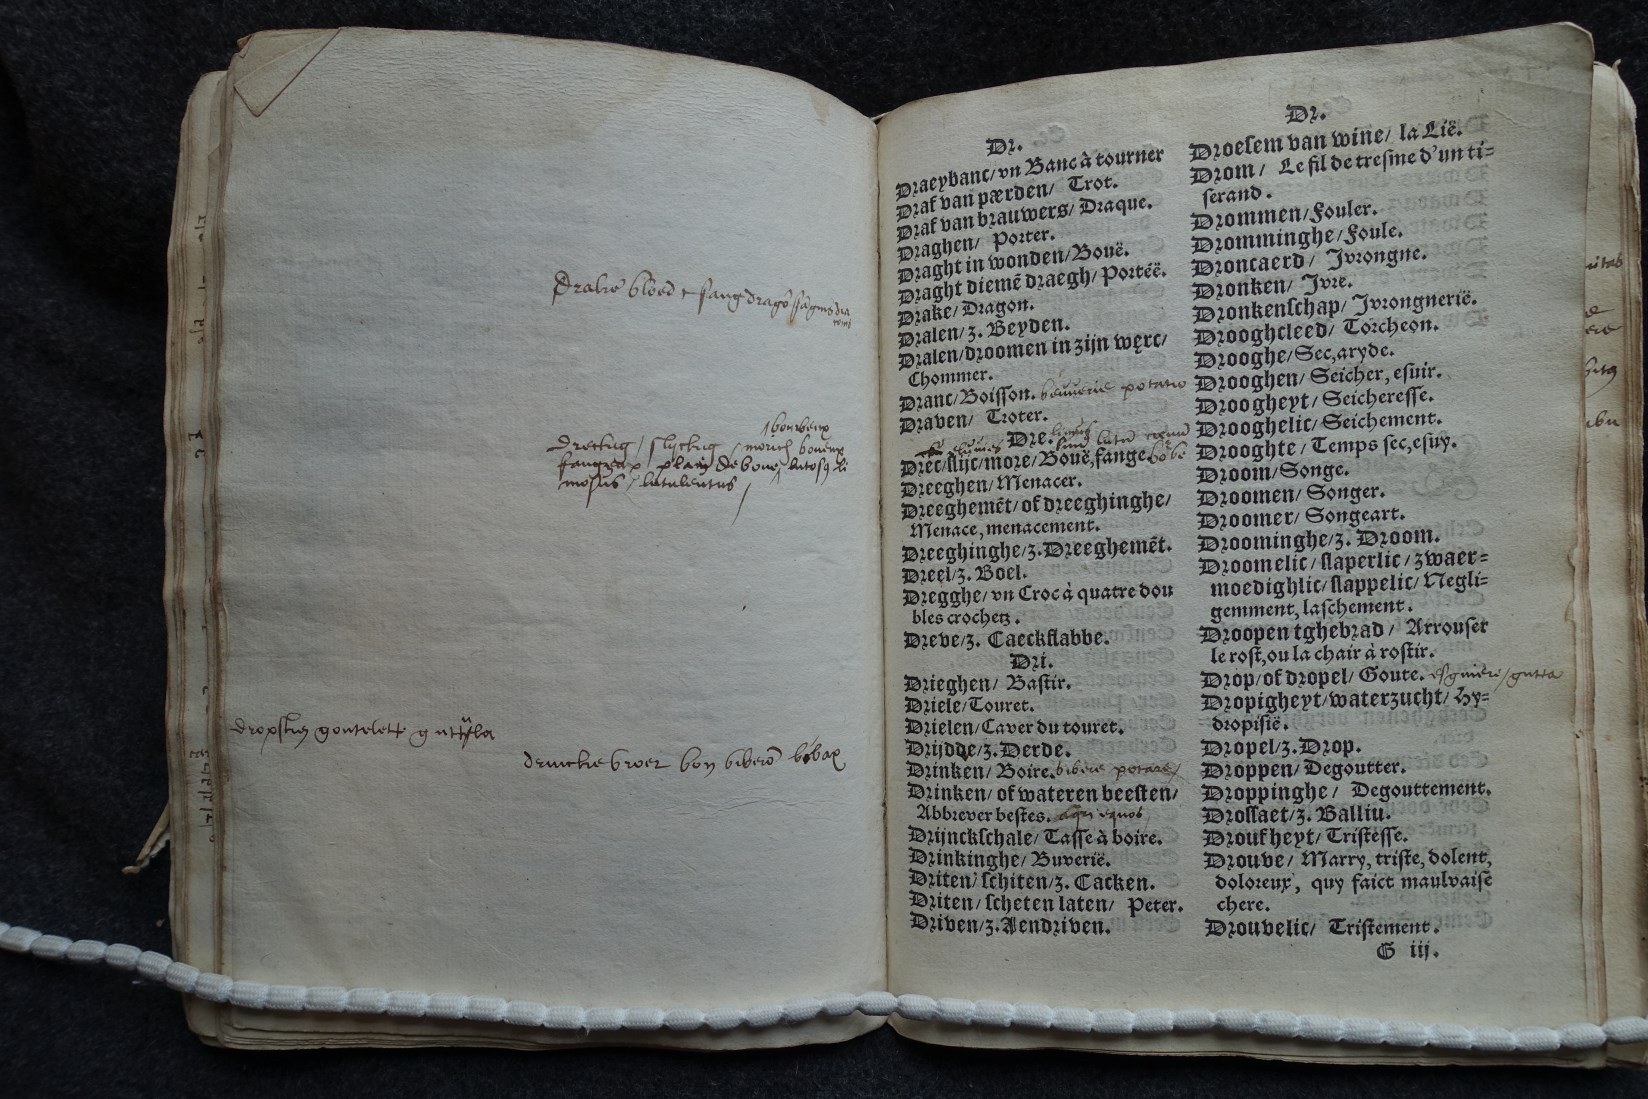 Drake bloed
bourbeux
dreckig / slyckig / morich boueux
fangeux plain de boue, lutosq; li
mosus / lutulentus
dropkin goutelette guttula
drinckebroer bon biberō bibax
Dr.
Draeybanc/ vn Banc à tourner
Draf van pærden/ Trot.
Draf van brauwers/ Draque.
Draghen/ Porter.
Draght in wonden/ Bouë.
Draght diemē draegh/ Portëë.
Drake/ Dragon.
Dralen/ z. Beyden.
Dralen/ droomen in zijn węrc/
Chommer.
Dranc/ Boisson. beuuerie potatio
Draven/ Troter.
Dre.
Drec/ slijc/ more/ Bouë, fange.
Dreeghen/ Menacer.
Dreeghemēt/ of dreeghinghe/
Menace, menacement.
Dreeghinghe/ z. Dreeghemēt.
Dreel/ z. Boel.
Dregghe/ vn Croc à quatre dou
bles crochetz.
Dreve/ z. Caeckslabbe.
Dri.
Drieghen/ Bastir.
Driele/ Touret.
Drielen/ Caver du touret.
Drijdde/ z. Derde.
Drinken/ Boire. bibere potare/
Drinken/ of wateren beesten/
Abbrever bestes.
Drijnckschale/ Tasse à boire.
Drinkinghe/ Buverië.
Driten/ schiten/ z. Cacken.
Driten/ scheten laten/ Peter.
Driven/ z. Aendriven.
Dr.
Droesem van wine/ la Lië.
Drom/ Le fil de tresme d'un ti=
serand.
Drommen/ Fouler.
Dromminghe/ Foule.
Droncaerd/ Jvrongne.
Dronken/ Jvre.
Dronkenschap/ Jvrongnerië.
Drooghcleed/ Torcheon.
Drooghe/ Sec, aryde.
Drooghen/ Seicher, esuir.
Droogheyt/ Seicheresse.
Drooghelic/ Seichement.
Drooghte/ Temps sec, esuy.
Droom/ Songe.
Droomen/ Songer.
Droomer/ Songeart.
Droominghe/ z. Droom.
Droomelic/ slaperlic/ zwaer=
moedighlic/ slappelic/ Negli=
gemment, laschement.
Droopen tghebrad/ Arrouser
le rost, ou la chair à rostir.
Drop/ of dropel/ Goute. esguiere/ gutta
Dropigheyt/ waterzucht/ Hy=
dropisië.
Dropel/ z. Drop.
Droppen/ Degoutter.
Droppinghe/ Degouttement.
Drossaet/ z. Balliu.
Droufheyt/ Tristesse.
Drouve/ Marry, triste, dolent,
doloreux, quy faict maulvaise
chere.
Drouvelic/ Tristement.
G iij.